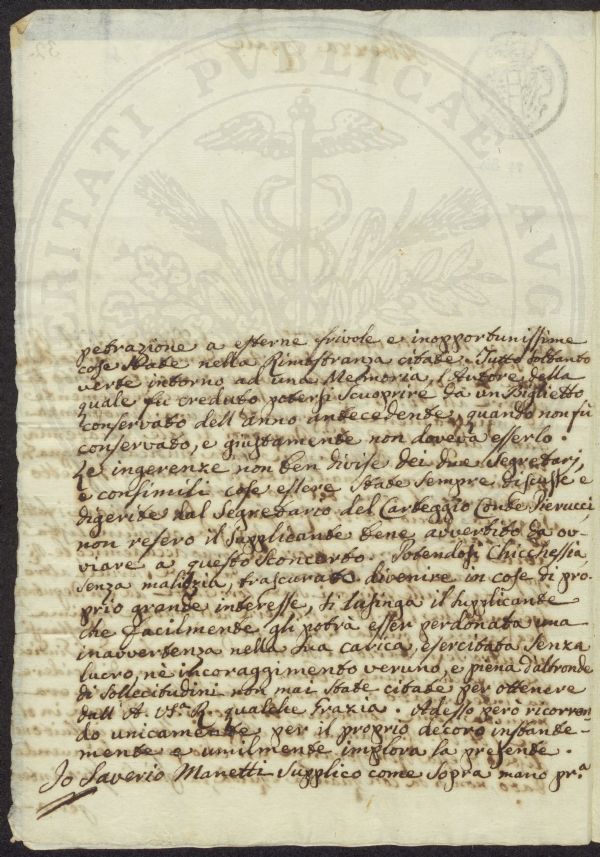 32
PROSPERITATI PVBLICAE AVG
petrazione a esterne frivole e inopportunissime
cose state nella Rimostranza citate. Tutto soltanto
verte intorno ad una Memoria, l'Autore della
quale fù creduto potersi scuoprire da un Biglietto
conservato dell'anno antecedente, quando non fù
conservato, e giustamente non doveva esserlo.
Le ingerenze non ben divise dei due Segretarj,
e consimili cose essere state sempre discusse e
digerite dal Segretario del Carteggio Conte Pierucci,
non resero il supplicante bene avvertito da ov-
viare a questo sconcerto. Potendosi Chicchessia,
senza malizia, trascurato divenire in cose di pro-
prio grande interesse, si lusinga il supplicante
che facilmente gli potrà esser perdonata una
inavvertenza nella sua carica, esercitata senza
lucro, nè incoraggimento veruno, e piena d'altronde
di sollecitudini non mai state citate per ottenere
dall'A. V.ª R. qualche grazia. Adesso però ricorren-
do unicamente per il proprio decoro instante-
mente e umilmente implora la presente.
Io Saverio Manetti supplico come sopra mano pr.ª